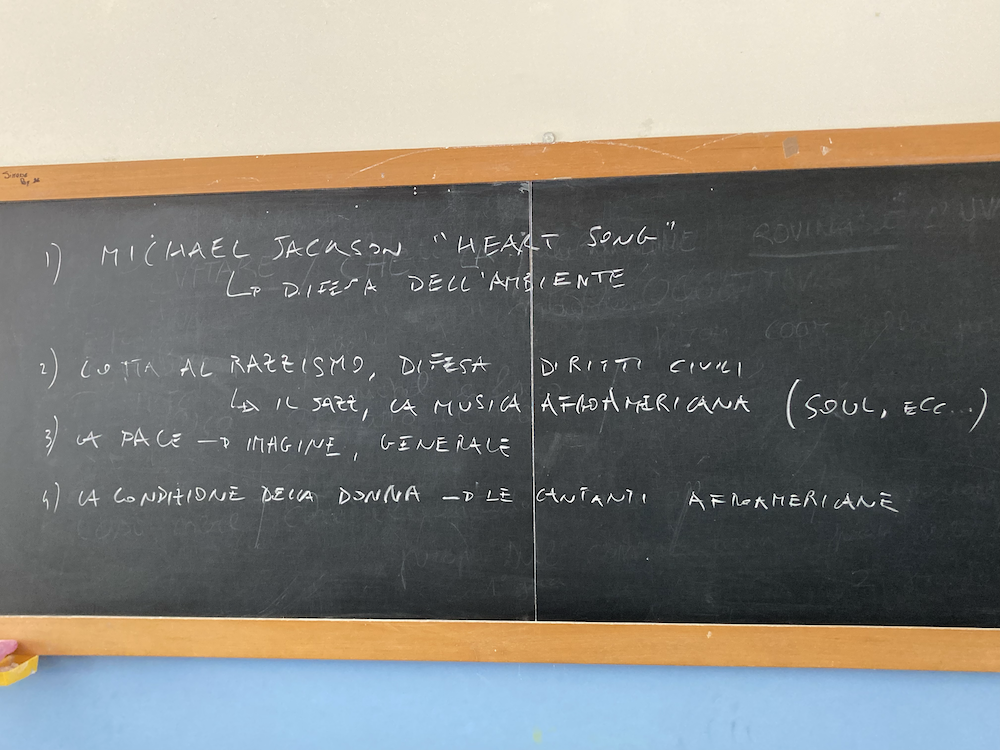 1) MICHAEL JACKSON "HEART SONG"
↳ DIFESA DELL'AMBIENTE
2) LOTTA AL RAZZISMO, DIFESA DIRITTI CIVILI
↳ IL JAZZ, LA MUSICA AFROAMERICANA (SOUL, ECC...)
3) LA PACE → IMAGINE, GENERALE
4) LA CONDIZIONE DELLA DONNA → LE CANTANTI AFROAMERICANE